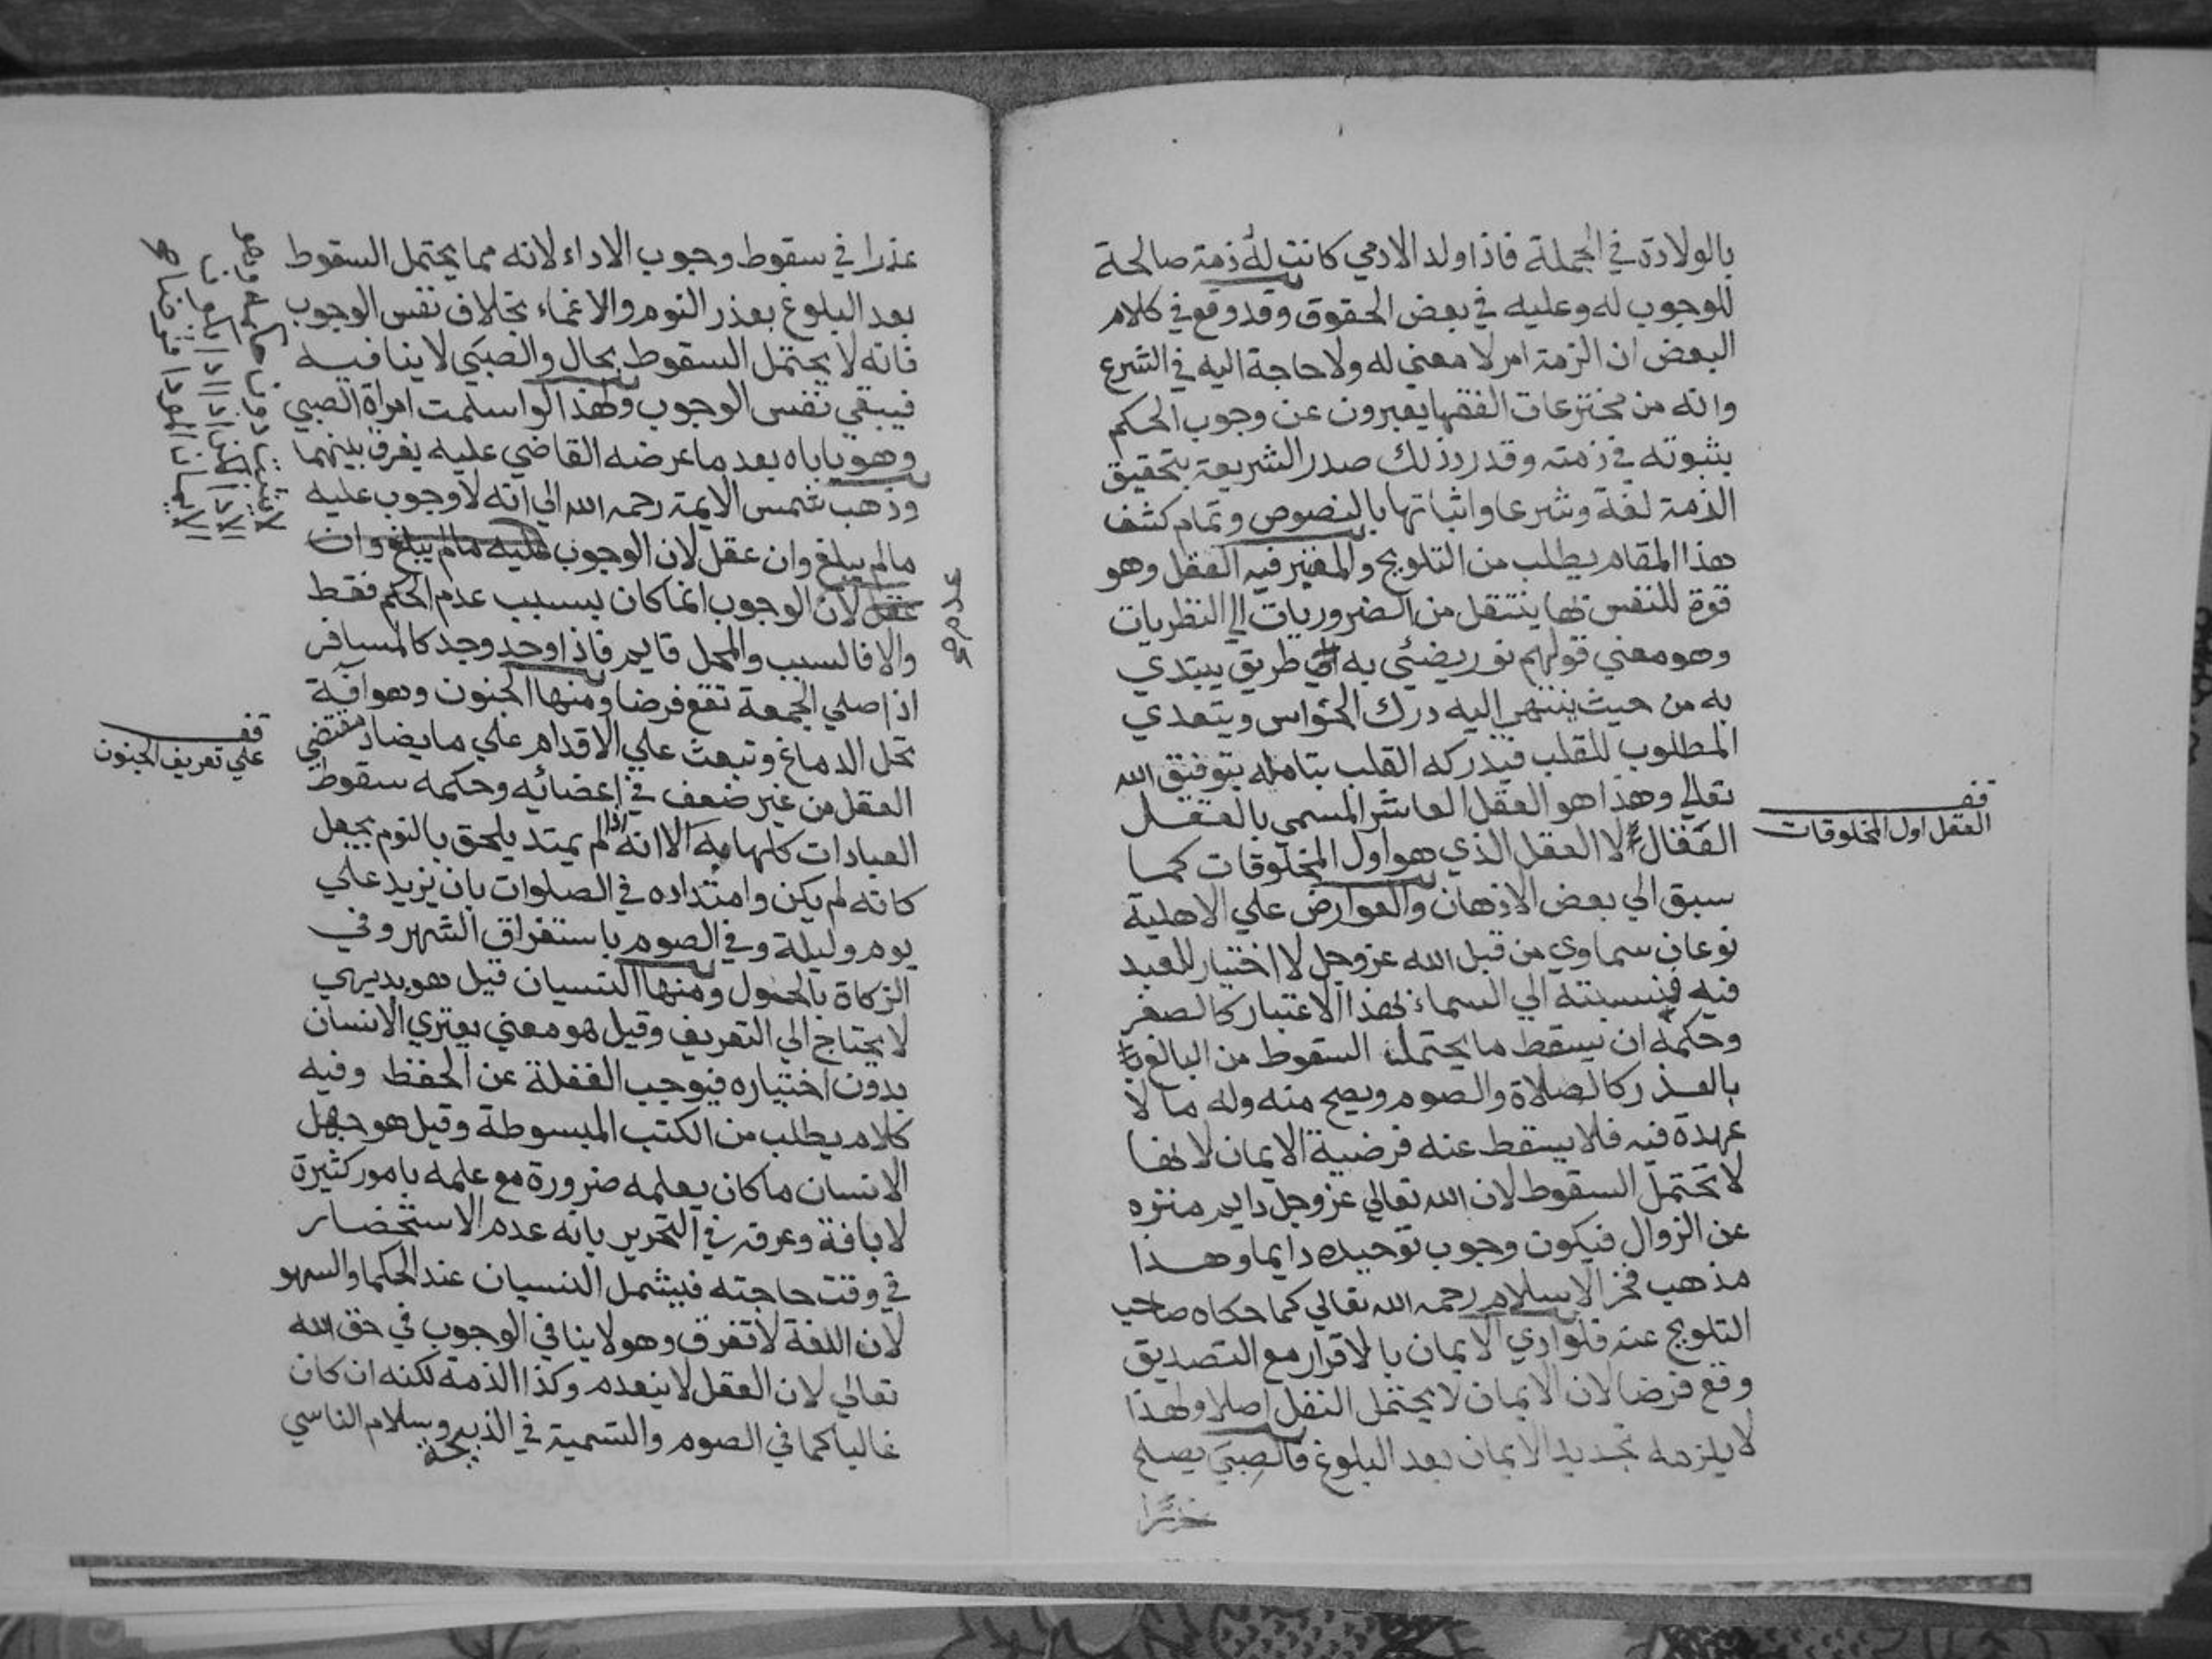 بالولادة في الجملة فاذا ولد الادمي كانت له ذمة صالحة
للوجوب له وعليه في بعض الحقوق وقد وقع في كلام
البعض ان الزمة امر لا معني له ولا حاجة اليه في الشرع
وانه من مخترعات الفقها يعبرون عن وجوب الحكم
بثبوته في ذمته وقد رد ذلك صدر الشريعة بتحقيق
الذمة لغة وشرعا واثباتها بالنصوص وتمام كشف
هذا المقام يطلب من التلويح والمعتبر فيه العقل وهو
قوة للنفس بها ينتقل من الضروريات الي النظريات
وهو معني قولهم نور يضئي به طريق يبتدي
به من حيث ينتهي اليه درك الحواس ويتعدي
المطلوب للقلب فيدركه القلب بتامله بتوفيق الله
تعالي وهذا هو العقل العاشر المسمي بالعقل
الفعال لا العقل الذي هو اول المخلوقات كما
سبق الي بعض الاذهان والعوارض علي الاهلية
نوعان سماوي من قبل الله عز وجل لا اختيار للعبد
فيه فنسبته الي السماء لهذا الاعتبار كالصغر
وحكمه ان يسقط ما يحتمل السقوط من البالغ
بالعذر كالصلاة والصوم ويصح منه وله ما لا
عهدة فيه فلا يسقط عنه فرضية الايمان لانها
لا تحتمل السقوط لان الله تعالي عز وجل دايم منزه
عن الزوال فيكون وجوب توحيده دايما وهذا
مذهب فخر الاسلام رحمه الله تعالي كما حكاه صاحب
التلويح عنه فلو ادي الايمان بالاقرار مع التصديق
وقع فرضا لان الايمان لا يحتمل النفل اصلا ولهذا
لا يلزمه تجديد الايمان بعد البلوغ فالصبي يصلح
عذرا
قف
العقل اول المخلوقات
عذرا في سقوط وجوب الاداء لانه مما يحتمل السقوط
بعد البلوغ بعذر النوم والاغماء بخلاف نفس الوجوب
فانه لا يحتمل السقوط بحال والصبي لا ينافيه
فيبقي نفس الوجوب ولهذا لو اسلمت امراة الصبي
وهو ياباه بعد ما عرضه القاضي عليه يفرق بينهما
وذهب شمس الايمة رحمه الله الي انه لا وجوب عليه
مالم يبلغ وان عقل لان الوجوب عليه مالم يبلغ وان
عقل لان الوجوب انما كان بسبب عدم الحكم فقط
والا فالسبب والمحل قايم فاذا وجد وجد كالمسافر
اذا صلي الجمعة تقع فرضا ومنها الجنون وهو افة
تحل الدماغ وتبعث علي الاقدام علي ما يضاد مقتضي
العقل من غير ضعف في اعضائه وحكمه سقوط
العبادات كلها به الا انه اذا لم يمتد يلحق بالنوم بجعل
كانه لم يكن وامتداده في الصلوات بان يزيد علي
يوم وليلة وفي الصوم باستغراق الشهر وفي
الزكاة بالحول ومنها النسيان قيل هو بديهي
لا يحتاج الي التعريف وقيل هو معني يعتري الانسان
بدون اختياره فيوجب الغفلة عن الحفظ وفيه
كلام يطلب من الكتب المبسوطة وقيل هو جهل
الانسان ما كان يعلمه ضرورة مع علمه بامور كثيرة
لا بافة وعرفه في التحرير بانه عدم الاستحضار
في وقت حاجته فيشمل النسيان عند الحكما والسهو
لان اللغة لا تفرق وهو لا ينافي الوجوب في حق الله
تعالي لان العقل لا ينعدم وكذا الذمة لكنه ان كان
غالبا كما في الصوم والتسمية في الذبيحة وسلام الناسي
قف
علي تعريف الجنون